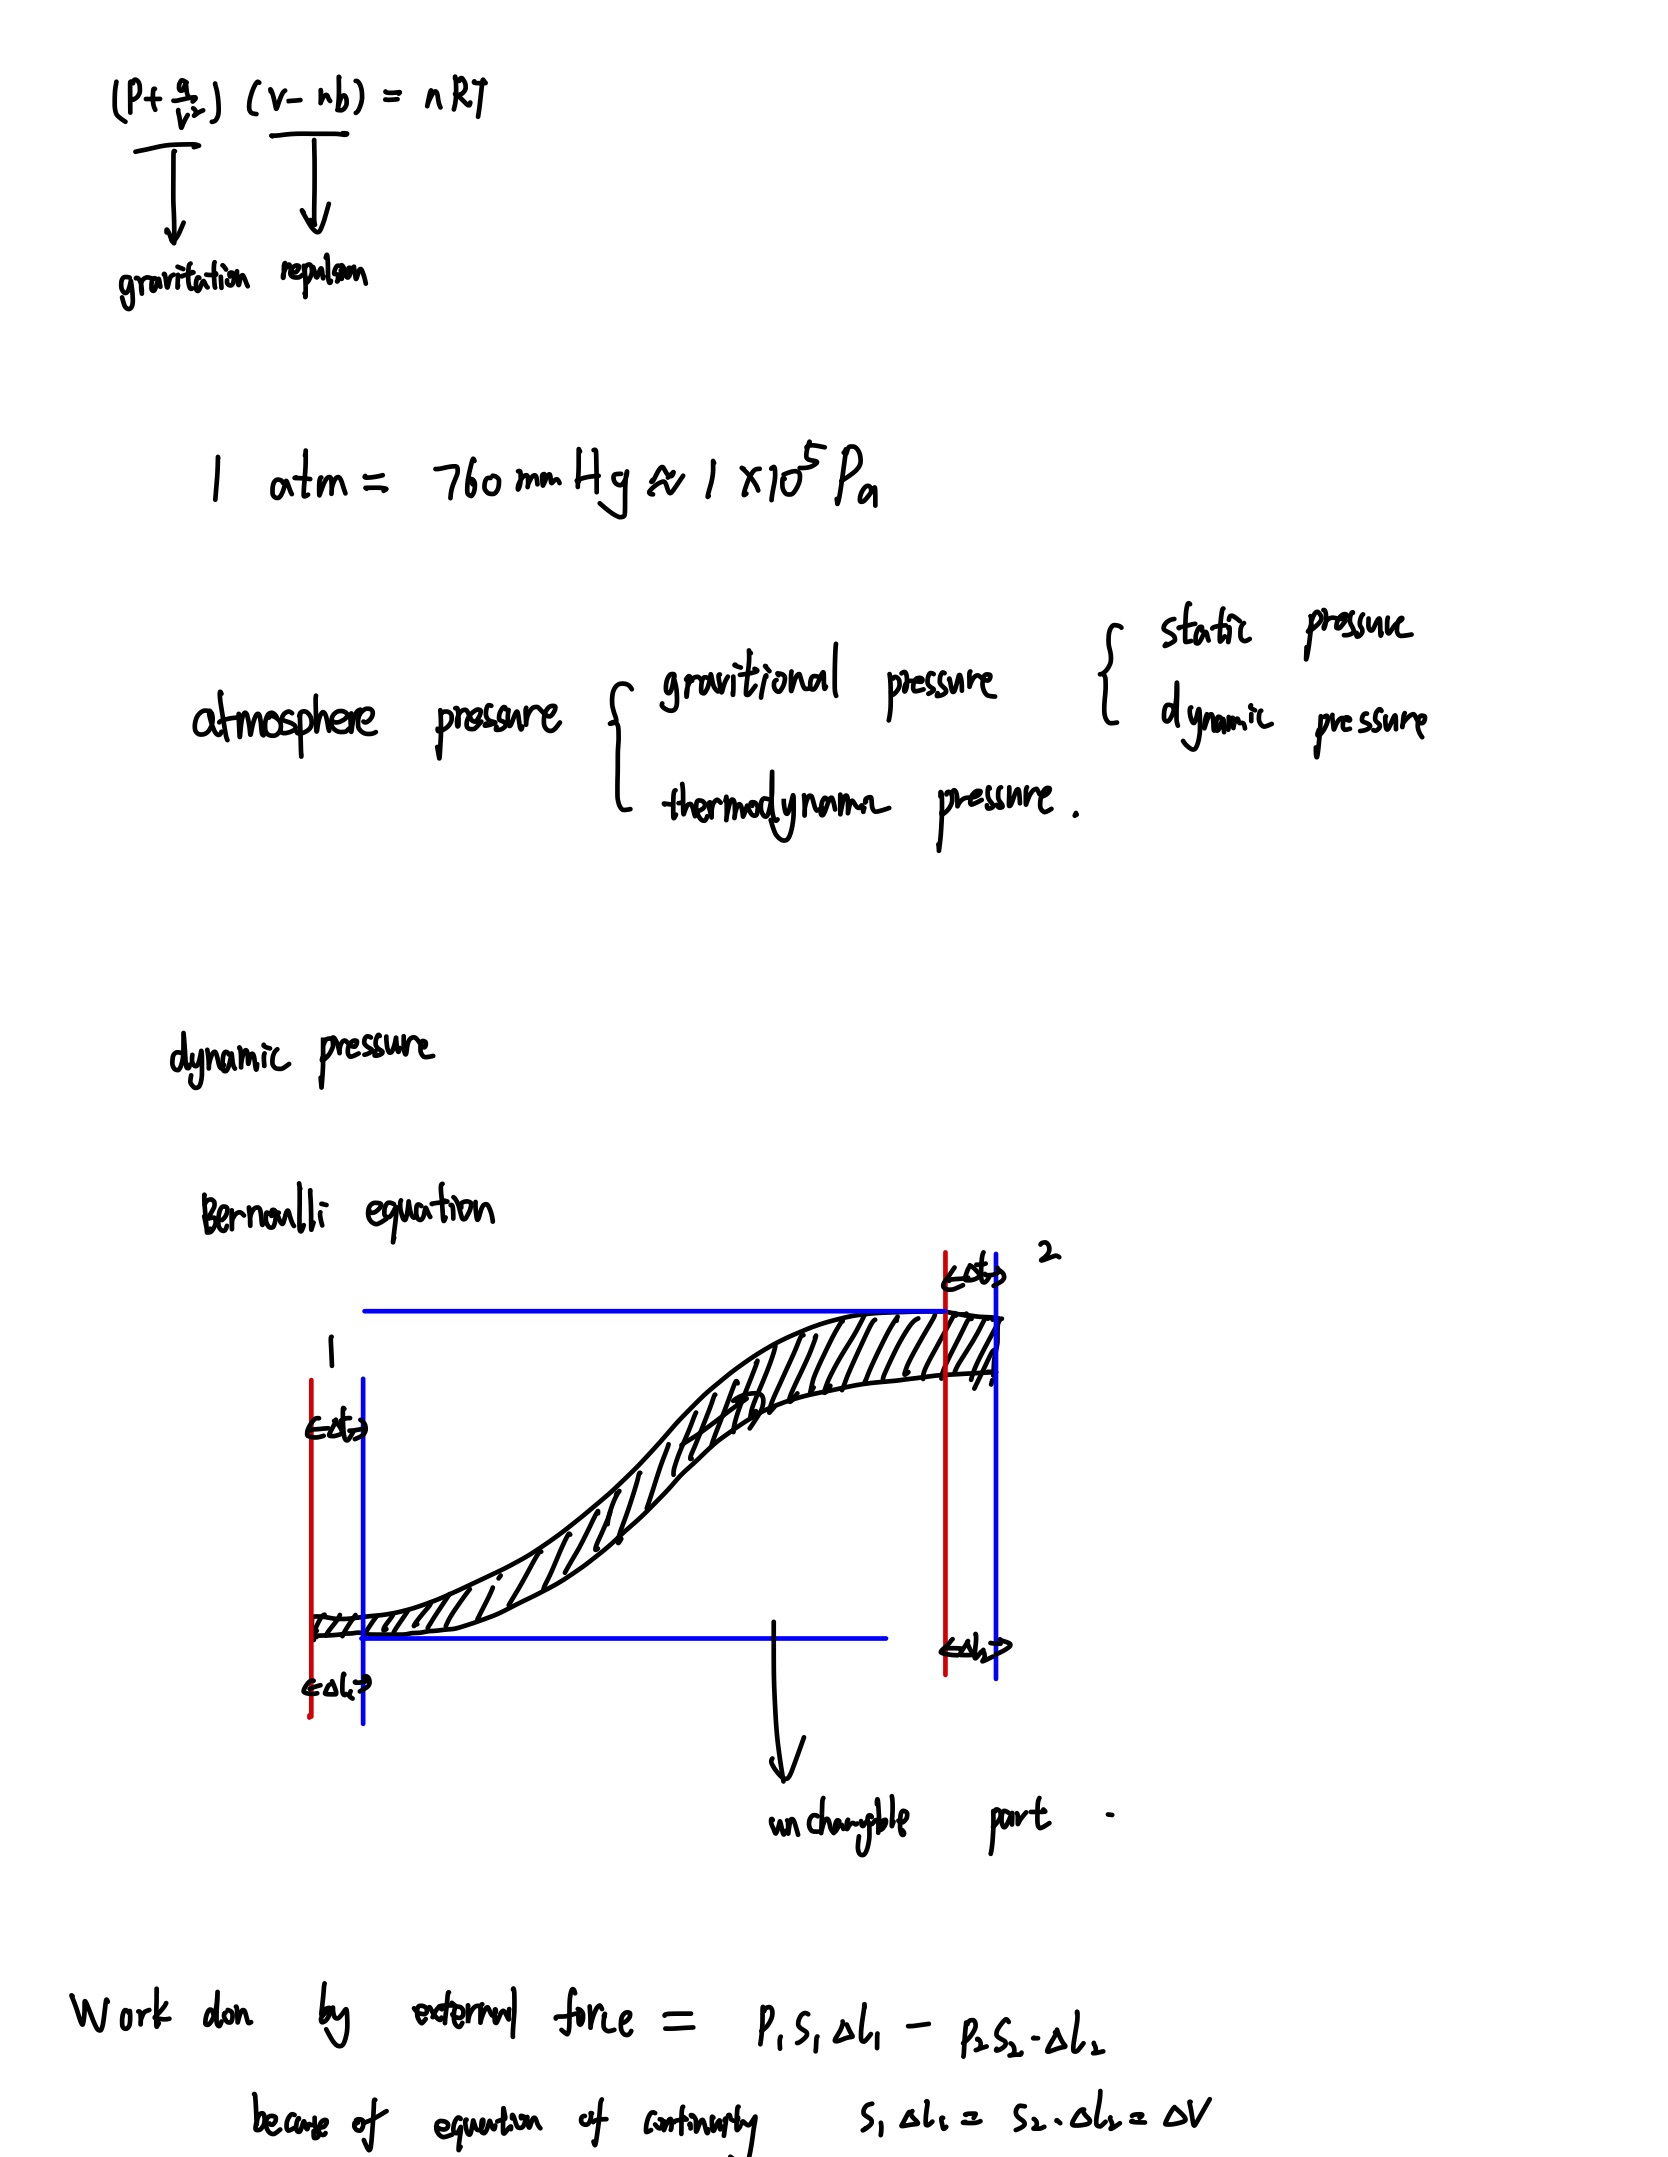 (P + a/v²) (v - nb) = nRT
gravitation repulsion
1 atm = 760 mm Hg ≈ 1 × 10⁵ Pa
static pressure
gravitional pressure
atmosphere pressure
dynamic pressure
thermodynamic pressure.
dynamic pressure
Bernoulli equation
2
Δt
1
Δt
ΔL₂
ΔL₁
unchangble part .
Work don by external force = P₁ S₁ ΔL₁ - P₂ S₂ · ΔL₂
because of equation of continuity S₁ ΔL₁ = S₂ · ΔL₂ = ΔV